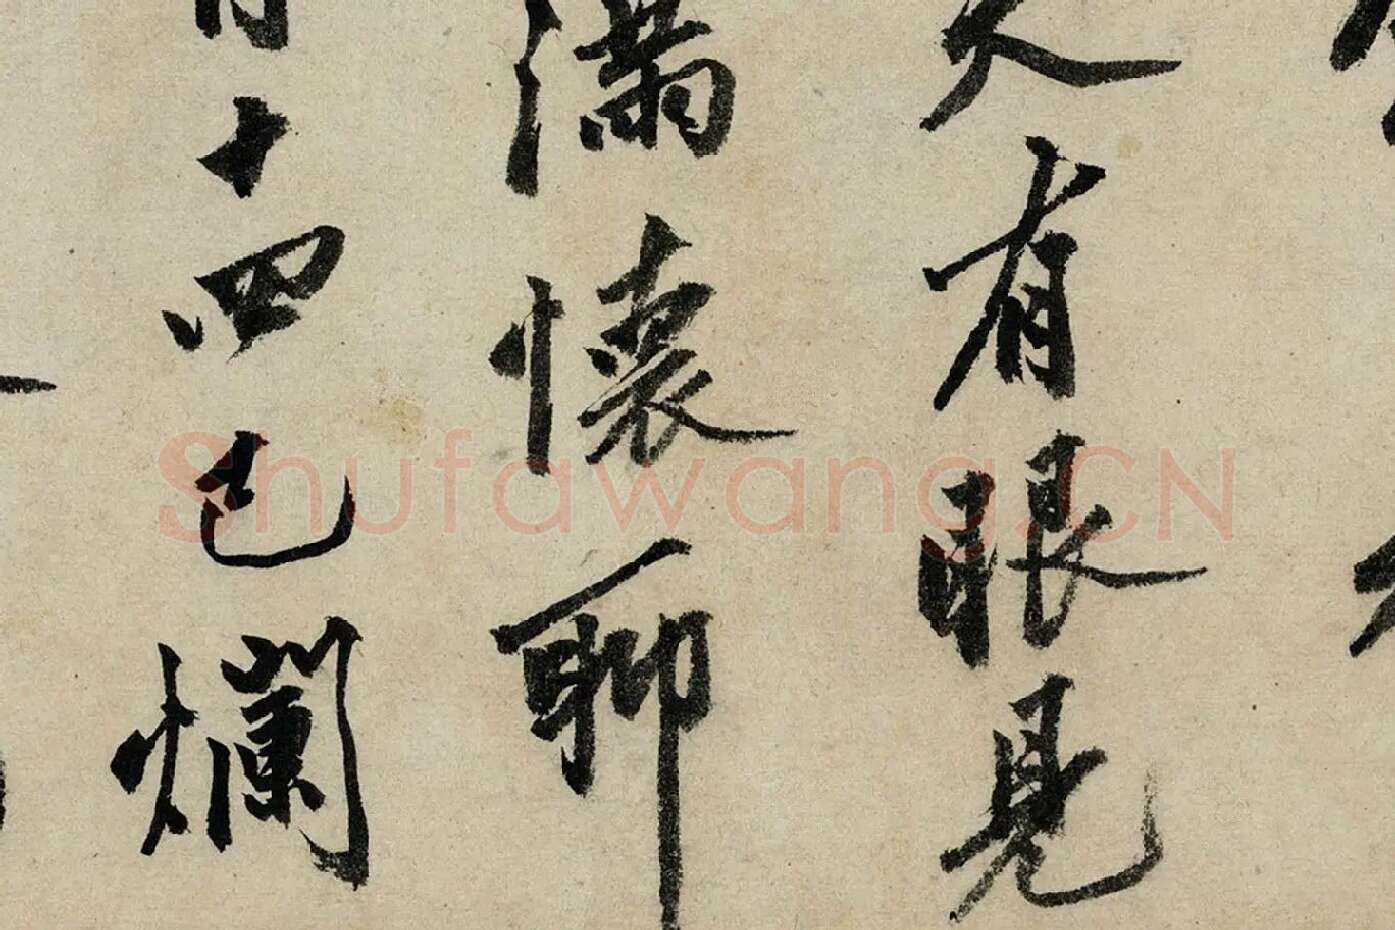 有眼見
滿懷聊
十四已爛
Shufawang.CN